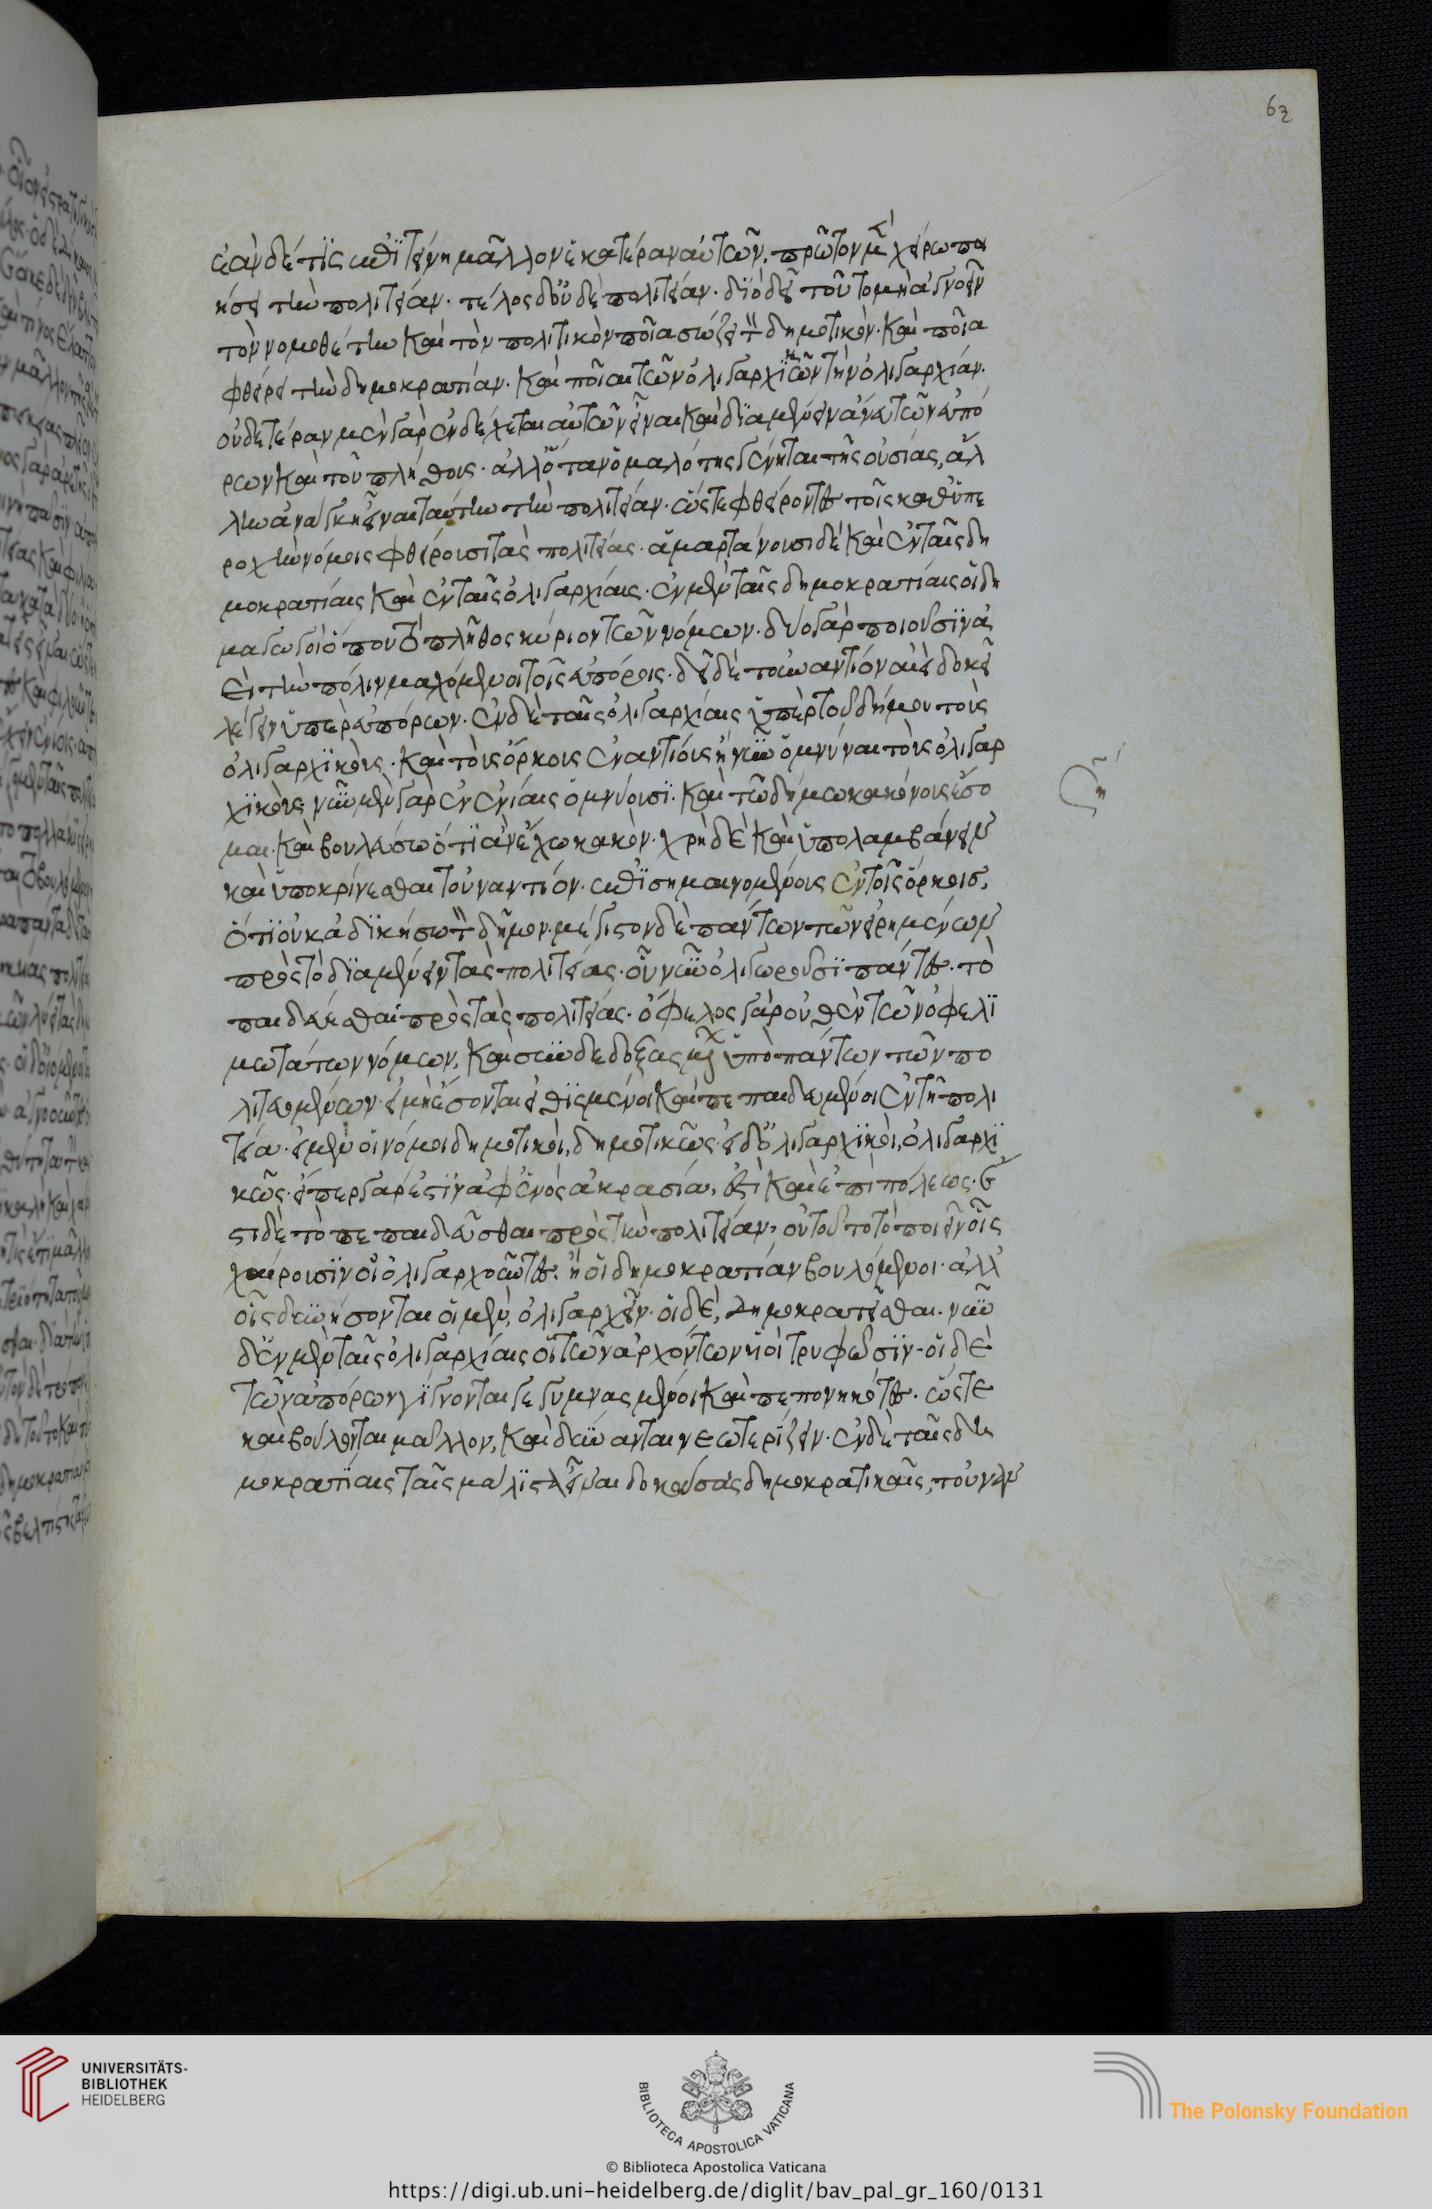 62
ἐὰν δέ τις ἐπιτείνη μᾶλλον ἑκατέραν αὐτῶν, πρῶτον μὲν χείρω ποι
ήσει τὴν πολιτείαν. τέλος δ' οὐδὲ πολιτείαν. διὸ δεῖ τοῦτο μὴ ἀγνοεῖν
τὸν νομοθέτην καὶ τὸν πολιτικὸν ποῖα σώζει τῶν δημοτικῶν. καὶ ποῖα
φθείρει τὴν δημοκρατίαν. καὶ ποῖαι τῶν ὀλιγαρχικῶν τὴν ὀλιγαρχίαν.
οὐδετέραν μὲν γὰρ ἐνδέχεται αὐτῶν εἶναι καὶ διαμένειν ἄνευ τῶν εὐπό
ρων καὶ τοῦ πλήθους. ἀλλ' ὅταν ὁμαλότης γένηται τῆς οὐσίας, ἄλ
λην ἀνάγκη εἶναι ταύτην τὴν πολιτείαν. ὥστε φθείροντες τοῖς καθ' ὑπε
ροχὴν νόμοις φθείρουσι τὰς πολιτείας. ἁμαρτάνουσι δὲ καὶ ἐν ταῖς δη
μοκρατίαις καὶ ἐν ταῖς ὀλιγαρχίαις. ἐν μὲν ταῖς δημοκρατίαις οἱ δη
μαγωγοὶ ὅπου τὸ πλῆθος κύριον τῶν νόμων. δύο γὰρ ποιοῦσιν ἀ
εὶ τὴν πόλιν μαχόμενοι τοῖς εὐπόροις. δεῖ δὲ τοὐναντίον αἰεὶ δοκεῖ
λέγειν ὑπὲρ εὐπόρων. ἐν δὲ ταῖς ὀλιγαρχίαις ὑπὲρ τοῦ δήμου τοὺς
ὀλιγαρχικούς. καὶ τοὺς ὅρκους ἐναντίους ἢ νῦν ὀμνύναι τοὺς ὀλιγαρ
χικούς νῦν μὲν γὰρ ἐν ἐνίαις ὀμνύουσι. καὶ τῶ δήμω κακόνους ἔσο
μαι. καὶ βουλεύσω ὅτι ἂν ἔχω κακόν. χρὴ δὲ καὶ ὑπολαμβάνειν
καὶ ὑποκρίνεσθαι τοὐναντίον. ἐπισημαινομένους ἐν τοῖς ὅρκοις,
ὅτι οὐκ ἀδικήσω τὸν δῆμον. μέγιστον δὲ πάντων τῶν εἰρημένων
πρὸς τὸ διαμένειν τὰς πολιτείας. οὗ νῦν ὀλιγωροῦσι πάντες. τὸ
παιδεύεσθαι πρὸς τὰς πολιτείας. ὄφελος γὰρ οὐθὲν τῶν ὀφελι
μωτάτων νόμων, καὶ συνδεδοξασμένων ὑπὸ πάντων τῶν πο
λιτευομένων. εἰ μὴ ἔσονται εἰθισμένοι καὶ πεπαιδευμένοι ἐν τῇ πολι
τεία. εἰ μὲν οἱ νόμοι δημοτικοί, δημοτικῶς. εἰ δ' ὀλιγαρχικοί, ὀλιγαρχι
κῶς. εἴπερ γάρ ἐστιν ἀφ' ἑνὸς ἀκρασία, ἔστι καὶ ἐπὶ πόλεως. ἔ
στι δὲ τὸ πεπαιδεῦσθαι πρὸς τὴν πολιτείαν, οὐ τοῦτο τὸ ποιεῖν οἷς
χαίρουσιν οἱ ὀλιγαρχοῦντες. ἢ οἱ δημοκρατίαν βουλόμενοι. ἀλλ'
οἷς δυνήσονται οἱ μὲν, ὀλιγαρχεῖν. οἱ δὲ, δημοκρατεῖσθαι. νῦν
δ' ἐν μὲν ταῖς ὀλιγαρχίαις οἱ τῶν ἀρχόντων υἱοὶ τρυφῶσιν. οἱ δὲ
τῶν ἀπόρων γίγνονται γεγυμνασμένοι καὶ πεπονηκότες. ὥστε
καὶ βούλονται μᾶλλον, καὶ δύνανται νεωτερίζειν. ἐν δὲ ταῖς δη
μοκρατίαις ταῖς μάλιστα εἶναι δοκούσαις δημοκρατικαῖς, τοὐναν
UNIVERSITÄTS-
BIBLIOTHEK
HEIDELBERG
BIBLIOTECA APOSTOLICA VATICANA
© Biblioteca Apostolica Vaticana
The Polonsky Foundation
https://digi.ub.uni-heidelberg.de/diglit/bav_pal_gr_160/0131